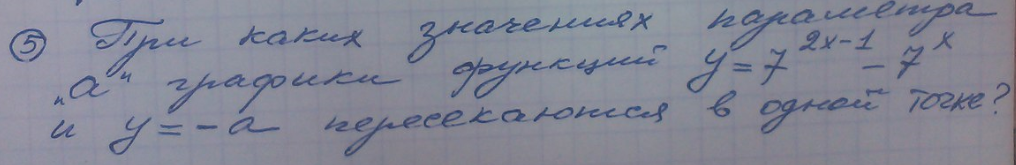 ⑤ При каких значениях параметра
„a“ графики функций y = 7^{2x-1} - 7^x
и y = -a пересекаются в одной точке?